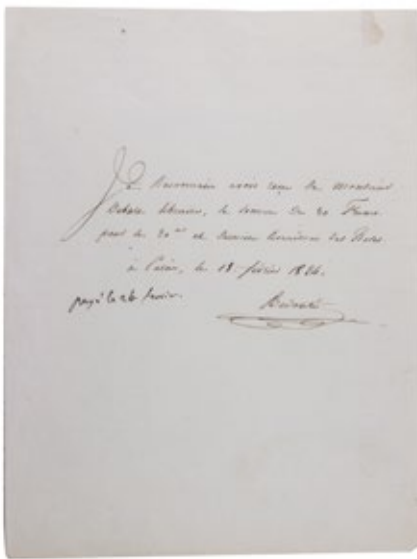 Je Reconnais avoir reçu de Monsieur
libraire, la somme de 20 Francs
pour la 20me et dernière livraison des Roses
à Paris, le 18 février 1824.
payé le 26 février.